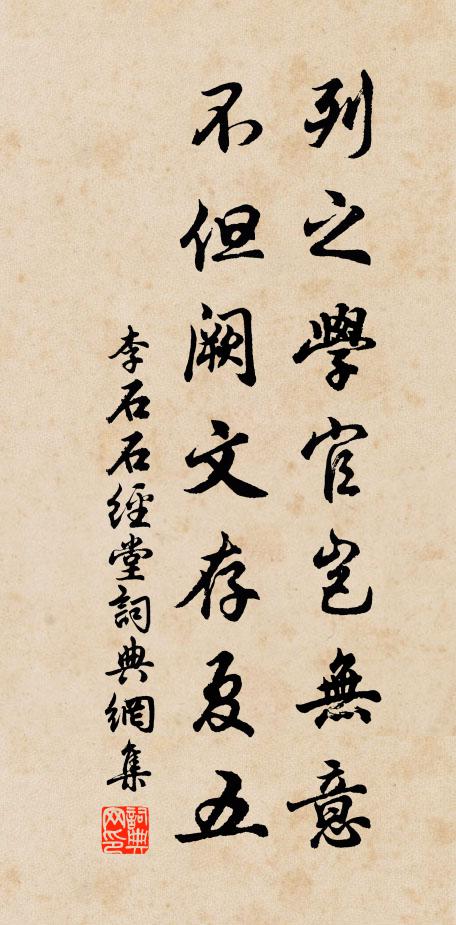 列之學官豈無意
不但闕文存夏五
李石石經堂詞典網集
詞典网印